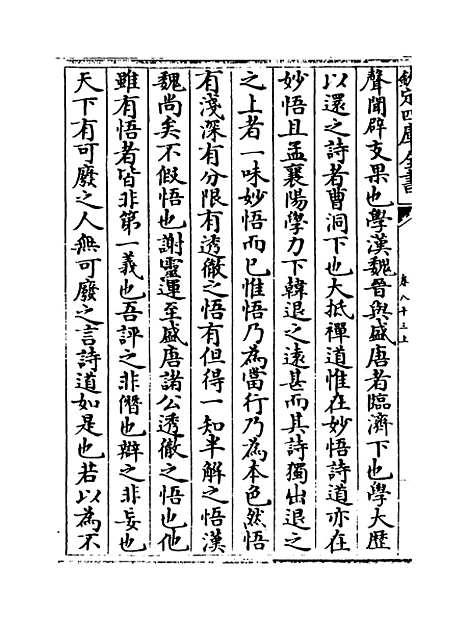 欽定四庫全書
卷八十三上
聲聞辟支果也學漢魏晉與盛唐者臨濟下也學大歷
以還之詩者曹洞下也大抵禪道惟在妙悟詩道亦在
妙悟且孟襄陽學力下韓退之遠甚而其詩獨出退之
之上者一味妙悟而已惟悟乃為當行乃為本色然悟
有淺深有分限有透徹之悟有但得一知半解之悟漢
魏尚矣不假悟也謝靈運至盛唐諸公透徹之悟也他
雖有悟者皆非第一義也吾評之非僭也辯之非妄也
天下有可廢之人無可廢之言詩道如是也若以為不